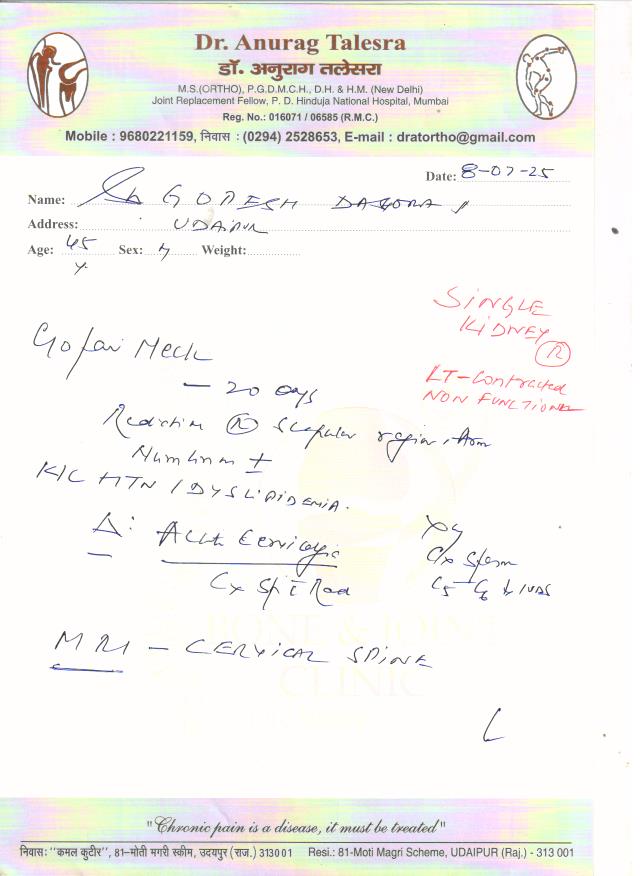 Dr. Anurag Talesra
डॉ. अनुराग तलेसरा
M.S.(ORTHO), P.G.D.M.C.H., D.H. & H.M. (New Delhi)
Joint Replacement Fellow, P. D. Hinduja National Hospital, Mumbai
Reg. No.: 016071 / 06585 (R.M.C.)
Mobile : 9680221159, निवास : (0294) 2528653, E-mail : dratortho@gmail.com
Date: 8-07-25
Name:
Address: UDAIPUR
Age: 45 y. Sex: Weight:
SINGLE
KIDNEY
R
LT-Contracted
NON FUNCTIONAL
- 20 days
R Scapular region
Numbness ±
K/C HTN / DYSLIPIDEMIA.
Δ:
C5-C6
MRI - CERVICAL SPINE
BONE & JOINT
CLINIC
"Chronic pain is a disease, it must be treated"
निवासः "कमल कुटीर", 81-मोती मगरी स्कीम, उदयपुर (राज.) 313001 Resi.: 81-Moti Magri Scheme, UDAIPUR (Raj.) - 313 001